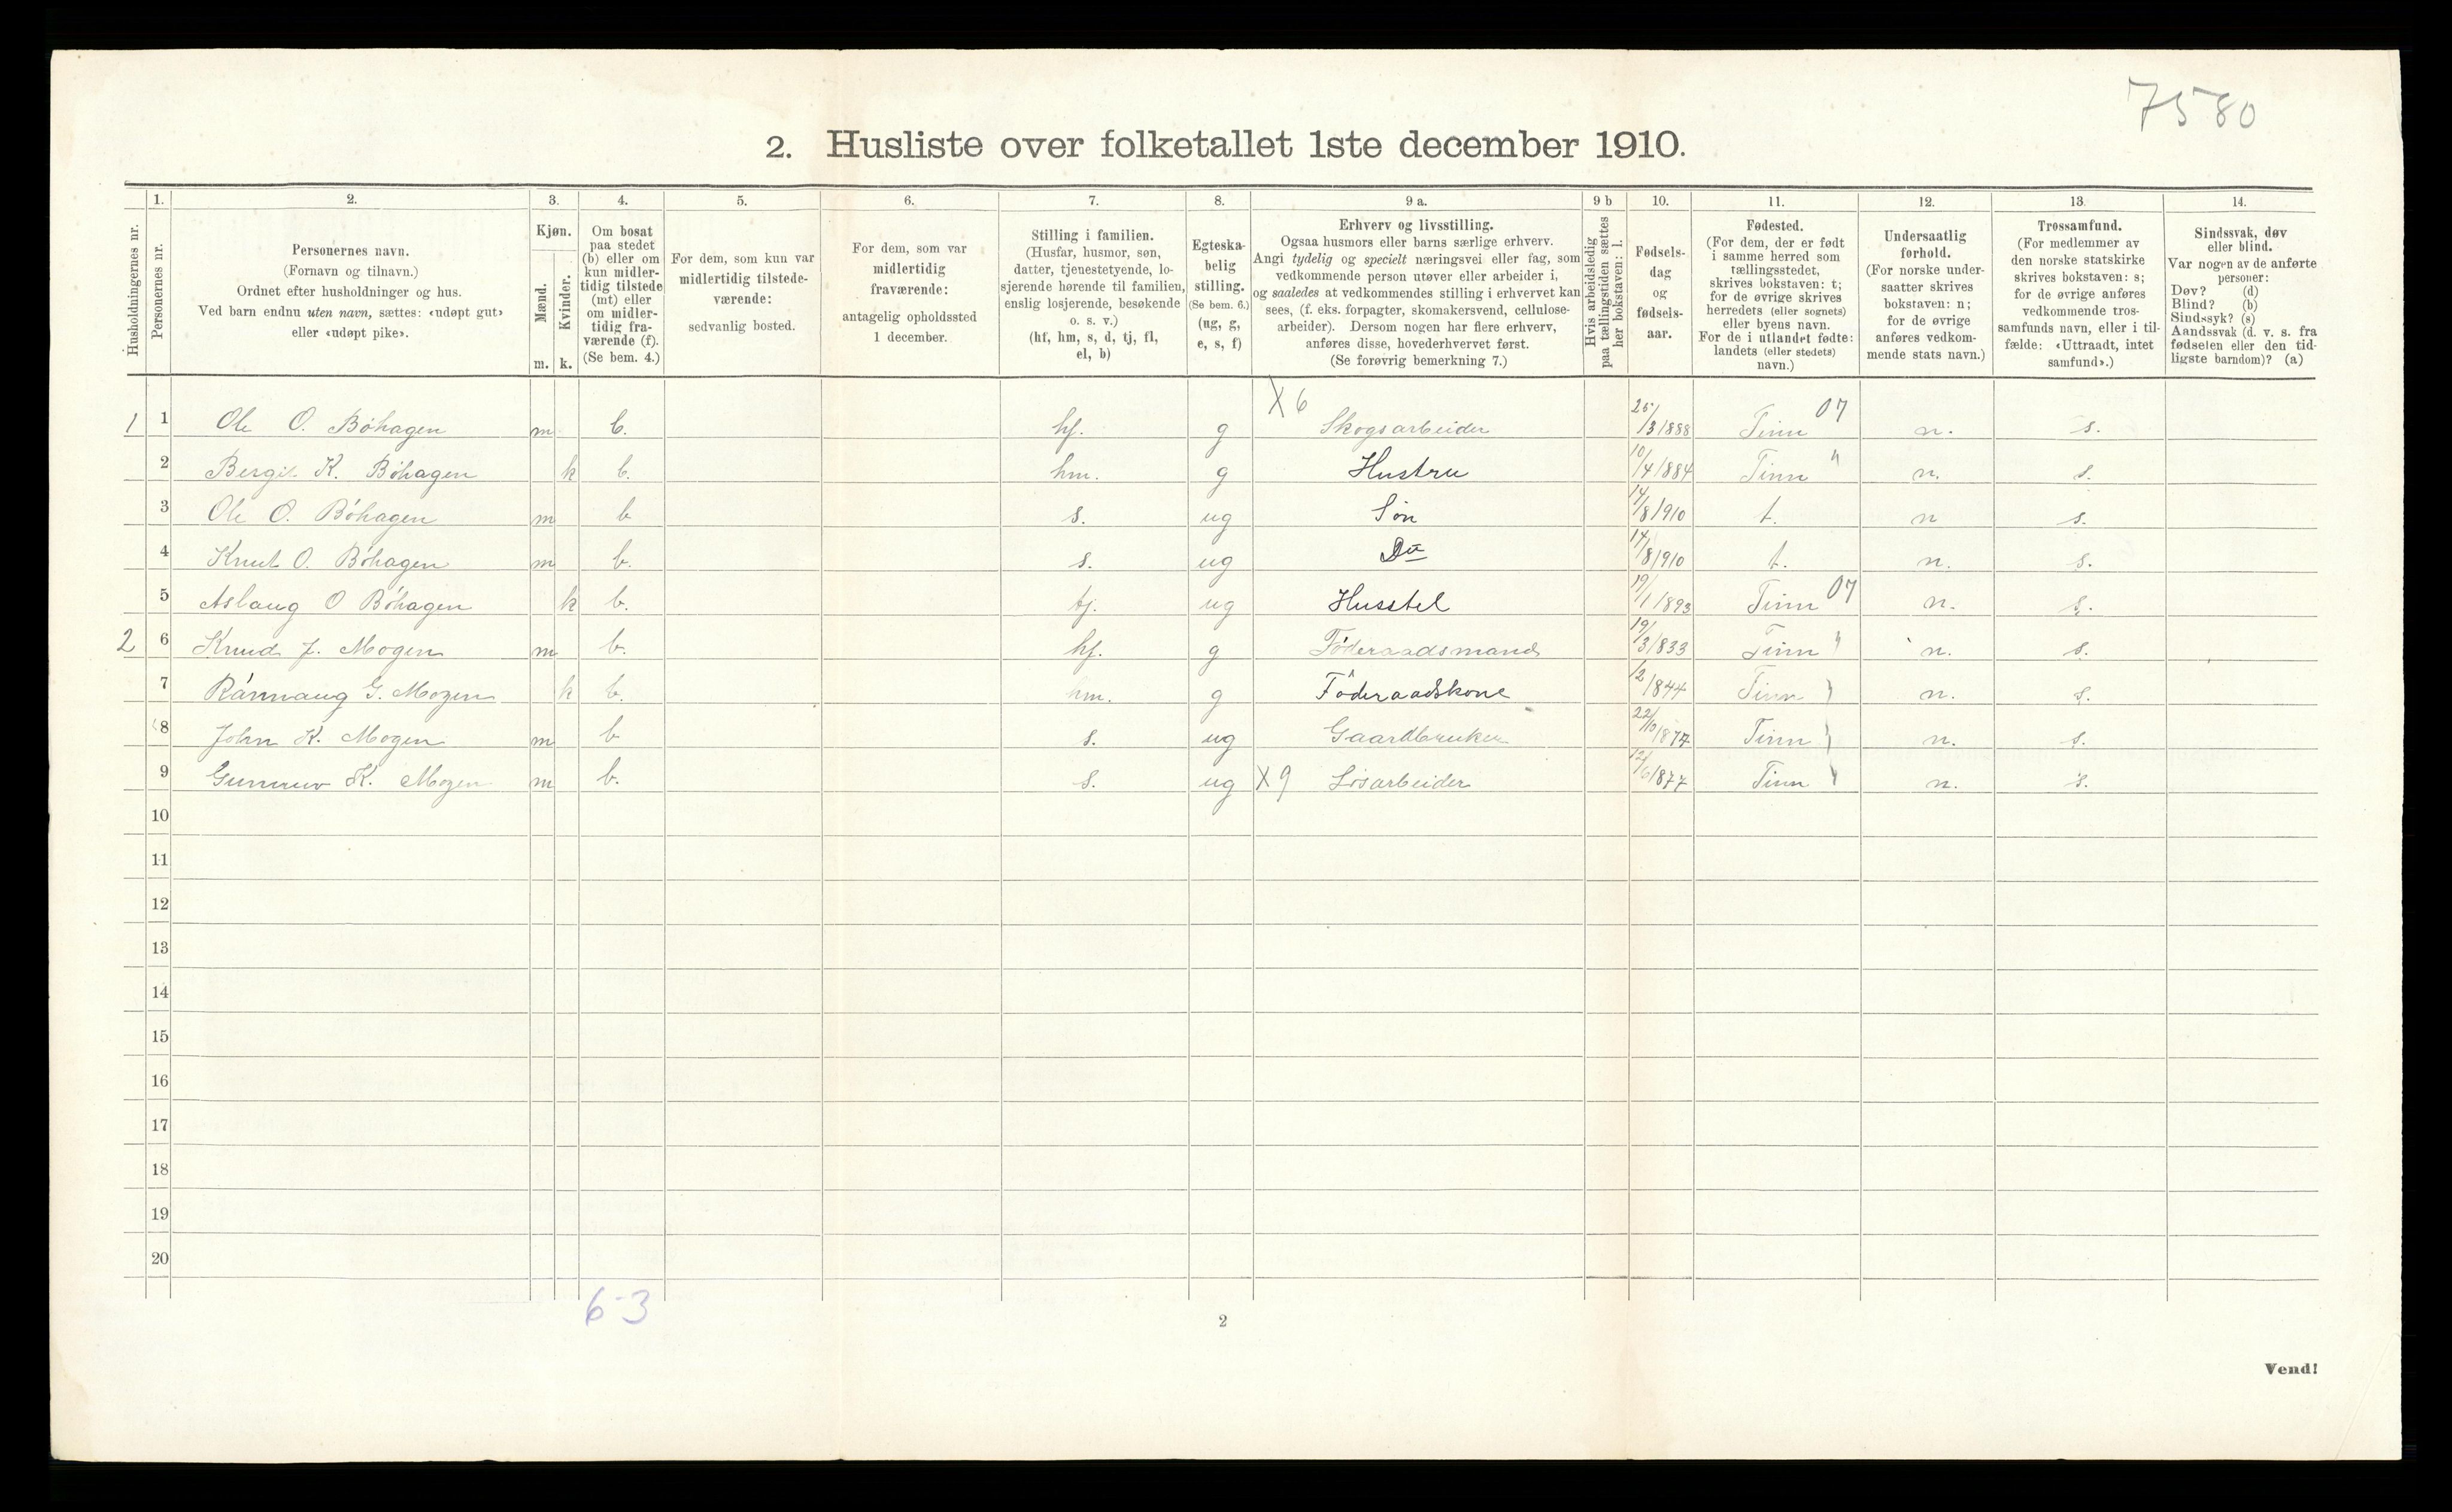 7580
2. Husliste over folketallet 1ste december 1910.
1. 2. 3. 4. 5. 6. 7. 8. 9 a. 9 b 10. 11. 12. 13. 14.
Husholdningernes nr.
Personernes nr.
Personernes navn.
(Fornavn og tilnavn.)
Ordnet efter husholdninger og hus.
Ved barn endnu uten navn, sættes: «udøpt gut»
eller «udøpt pike».
Kjøn.
Mænd.
Kvinder.
m. k.
Om bosat
paa stedet
(b) eller om
kun midler-
tidig tilstede
(mt) eller
om midler-
tidig fra-
værende (f).
(Se bem. 4.)
For dem, som kun var
midlertidig tilstede-
værende:
sedvanlig bosted.
For dem, som var
midlertidig
fraværende:
antagelig opholdssted
1 december.
Stilling i familien.
(Husfar, husmor, søn,
datter, tjenestetyende, lo-
sjerende hørende til familien,
enslig losjerende, besøkende
o. s. v.)
(hf, hm, s, d, tj, fl,
el, b)
Egteska-
belig
stilling.
(Se bem. 6.)
(ug, g,
e, s, f)
Erhverv og livsstilling.
Ogsaa husmors eller barns særlige erhverv.
Angi tydelig og specielt næringsvei eller fag, som
vedkommende person utøver eller arbeider i,
og saaledes at vedkommendes stilling i erhvervet kan
sees, (f. eks. forpagter, skomakersvend, cellulose-
arbeider). Dersom nogen har flere erhverv,
anføres disse, hovederhvervet først.
(Se forøvrig bemerkning 7.)
Hvis arbeidsledig
paa tællingstiden sættes
her bokstaven: l.
Fødsels-
dag
og
fødsels-
aar.
Fødested.
(For dem, der er født
i samme herred som
tællingsstedet,
skrives bokstaven: t;
for de øvrige skrives
herredets (eller sognets)
eller byens navn.
For de i utlandet fødte:
landets (eller stedets)
navn.)
Undersaatlig
forhold.
(For norske under-
saatter skrives
bokstaven: n;
for de øvrige
anføres vedkom-
mende stats navn.)
Trossamfund.
(For medlemmer av
den norske statskirke
skrives bokstaven: s;
for de øvrige anføres
vedkommende tros-
samfunds navn, eller i til-
fælde: «Uttraadt, intet
samfund».)
Sindssvak, døv
eller blind.
Var nogen av de anførte
personer:
Døv? (d)
Blind? (b)
Sindssyk? (s)
Aandssvak (d. v. s. fra
fødselen eller den tid-
ligste barndom)? (a)
1 1 Ole O. Böhagen m b. hf. g X 6 Skogsarbeider 25/3 1888 Tinn 07 n. s.
2 Bergit K. Böhagen k b. hm. g Hustru 10/4 1884 Tinn " n. s.
3 Ole O. Böhagen m b s. ug Sön 14/8 1910 t. n s.
4 Knut O. Böhagen m b. s. ug Do 14/8 1910 t. n. s.
5 Aslaug O Böhagen k b. tj. ug Husstel 19/1 1893 Tinn 07 n. s.
2 6 Knud J. Mogen m b. hf. g Föderaadsmand 19/3 1833 Tinn " n. s.
7 Rannaug G. Mogen k b. hm. g Föderaadskone 1844 Tinn " n. s.
8 John K. Mogen m b s. ug Gaardbruker 22/10 1874 Tinn " n. s.
9 K. Mogen m b. s. ug X 9 Lösarbeider 12/6 1877 Tinn " n. s.
10
11
12
13
14
15
16
17
18
19
20
6-3
2
Vend!